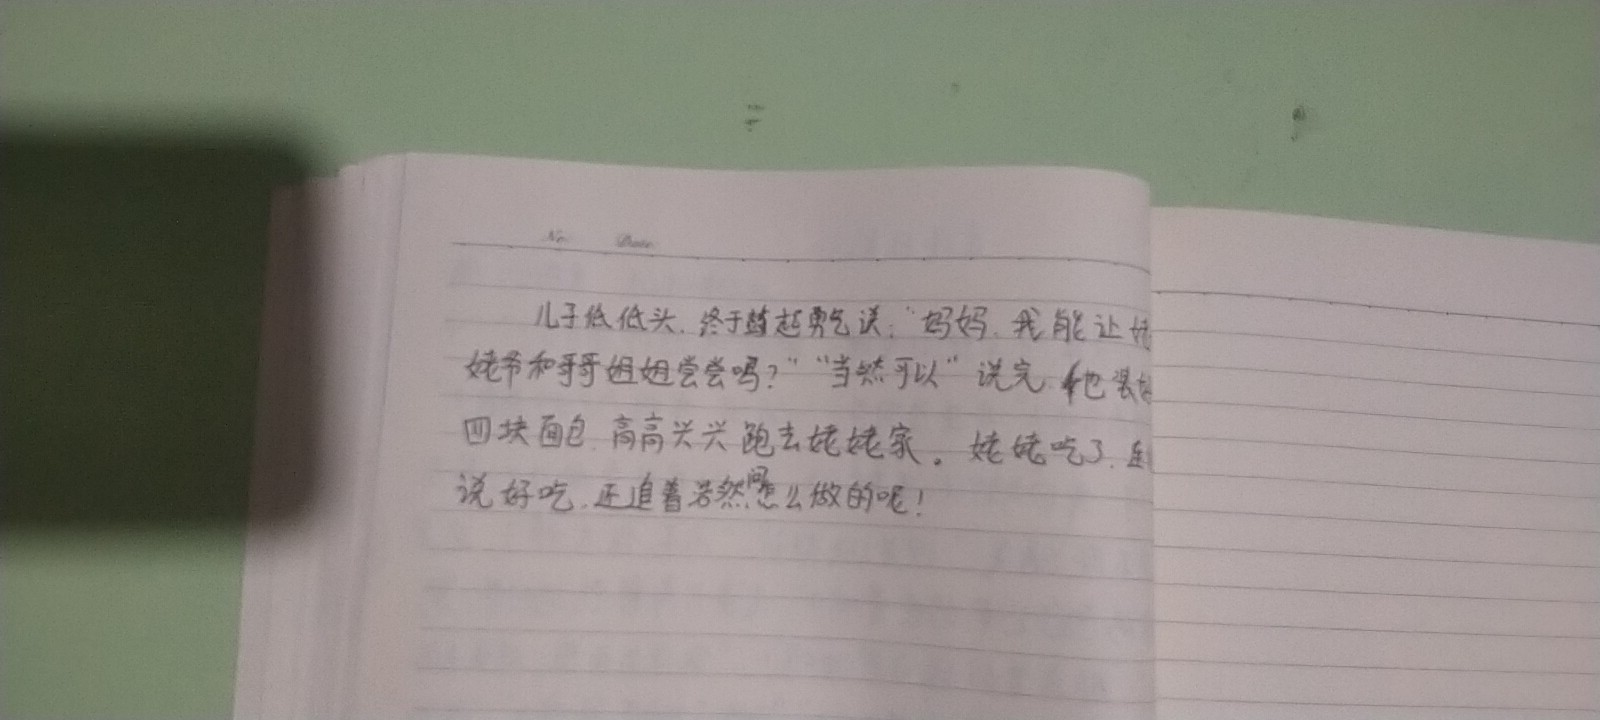 No. Date.
儿子低低头,终于鼓起勇气说:"妈妈,我能让姥
姥爷和哥哥姐姐尝尝吗?""当然可以"说完,他
四块面包,高高兴兴跑去姥姥家。姥姥吃了,
说好吃,还追着若然问怎么做的呢!